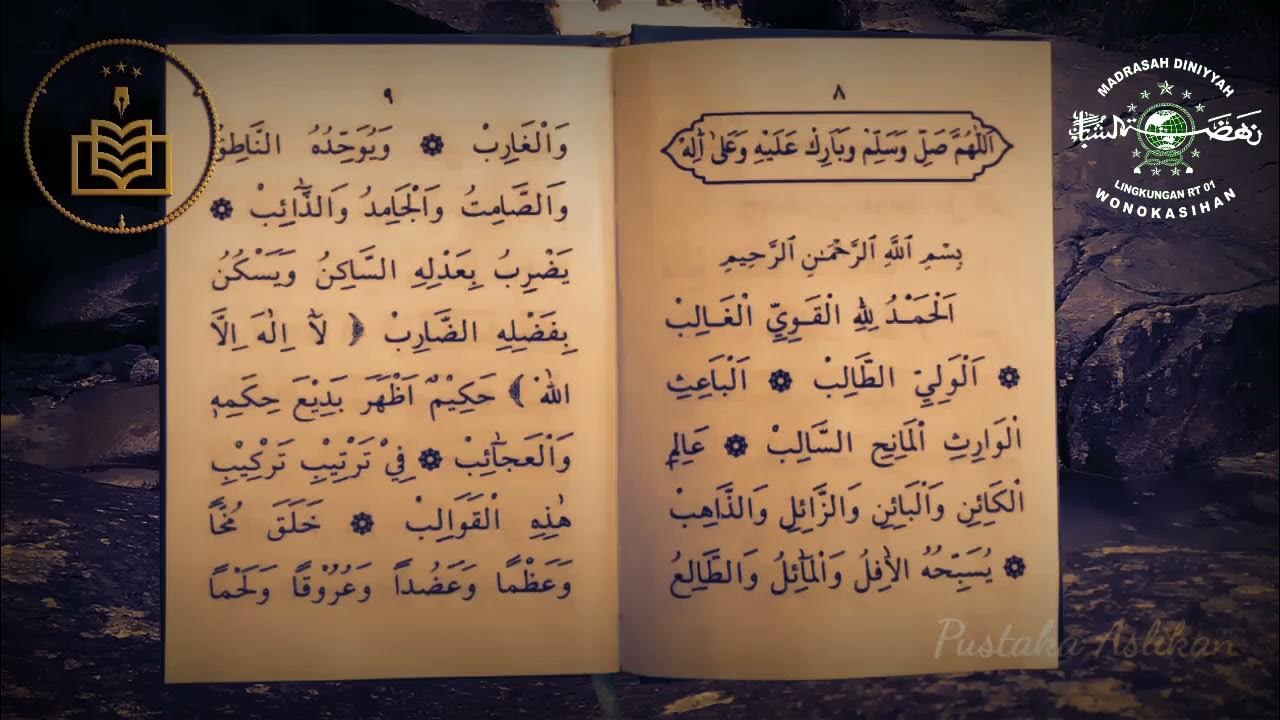 ٨
اَللّٰهُمَّ صَلِّ وَسَلِّمْ وَبَارِكْ عَلَيْهِ وَعَلٰى اٰلِهْ
بِسْمِ ٱللَّهِ ٱلرَّحْمَٰنِ ٱلرَّحِيمِ
اَلْحَمْدُ لِلّٰهِ الْقَوِيِّ الْغَالِبْ
۞ اَلْوَلِيِّ الطَّالِبْ ۞ اَلْبَاعِثِ
الْوَارِثِ الْمَانِحِ السَّالِبْ ۞ عَالِمِ
الْكَائِنِ وَالْبَائِنِ وَالزَّائِلِ وَالذَّاهِبْ
۞ يُسَبِّحُهُ الْاٰفِلُ وَالْمَائِلُ وَالطَّالِعُ
٩
وَالْغَارِبْ ۞ وَيُوَحِّدُهُ النَّاطِقُ
وَالصَّامِتُ وَالْجَامِدُ وَالذَّائِبْ ۞
يَضْرِبُ بِعَدْلِهِ السَّاكِنُ وَيَسْكُنُ
بِفَضْلِهِ الضَّارِبْ ﴿ لَآ اِلٰهَ اِلَّا
اللهُ ﴾ حَكِيْمٌ اَظْهَرَ بَدِيْعَ حِكَمِهٖ
وَالْعَجَائِبْ ۞ فِيْ تَرْتِيْبِ تَرْكِيْبِ
هٰذِهِ الْقَوَالِبْ ۞ خَلَقَ مُخًّا
وَعَظْمًا وَعَضُدًا وَعُرُوْقًا وَلَحْمًا
MADRASAH DINIYYAH
LINGKUNGAN RT 01
WONOKASIHAN
Pustaka Aslikan